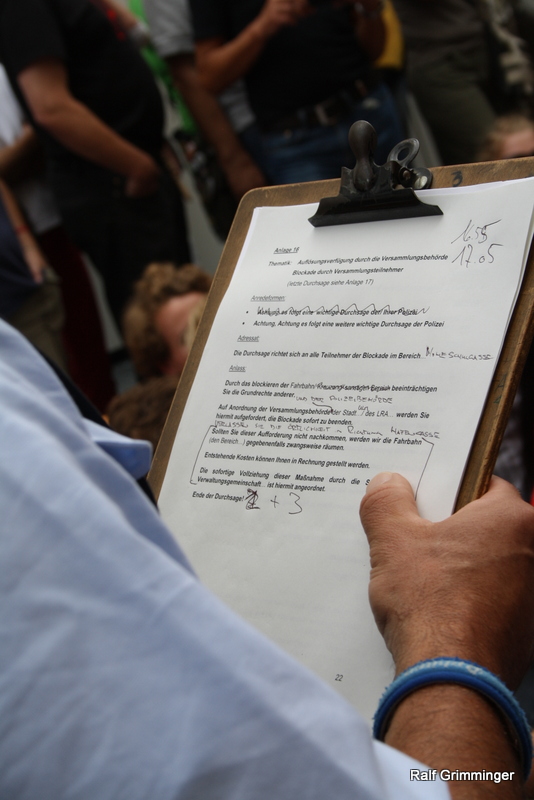 3
16 55
17.05
Anlage 18
Thematik: Auflösungsverfügung durch die Versammlungsbehörde
Blockade durch Versammlungsteilnehmer
(letzte Durchsage siehe Anlage 17)
Anredeformen:
• Achtung es folgt eine wichtige Durchsage der/ Ihrer Polizei
• Achtung, Achtung es folgt eine weitere wichtige Durchsage der Polizei
Adressat:
Die Durchsage richtet sich an alle Teilnehmer der Blockade im Bereich
Anlass:
Durch das blockieren der Fahrbahn beeinträchtigen
Sie die Grundrechte anderer.
UND DER POLIZEIBEHÖRDE
Auf Anordnung der Versammlungsbehörde der Stadt des LRA... werden Sie
hiermit aufgefordert, die Blockade sofort zu beenden.
VERLASSEN SIE DIE ÖRTLICHKEIT IN RICHTUNG HAFENGASSE
Sollten Sie dieser Aufforderung nicht nachkommen, werden wir die Fahrbahn
(den Bereich...) gegebenenfalls zwangsweise räumen.
Entstehende Kosten können Ihnen in Rechnung gestellt werden.
Die sofortige Vollziehung dieser Maßnahme durch die
Verwaltungsgemeinschaft ist hiermit angeordnet.
Ende der Durchsage! 2 + 3
22
Ralf Grimminger